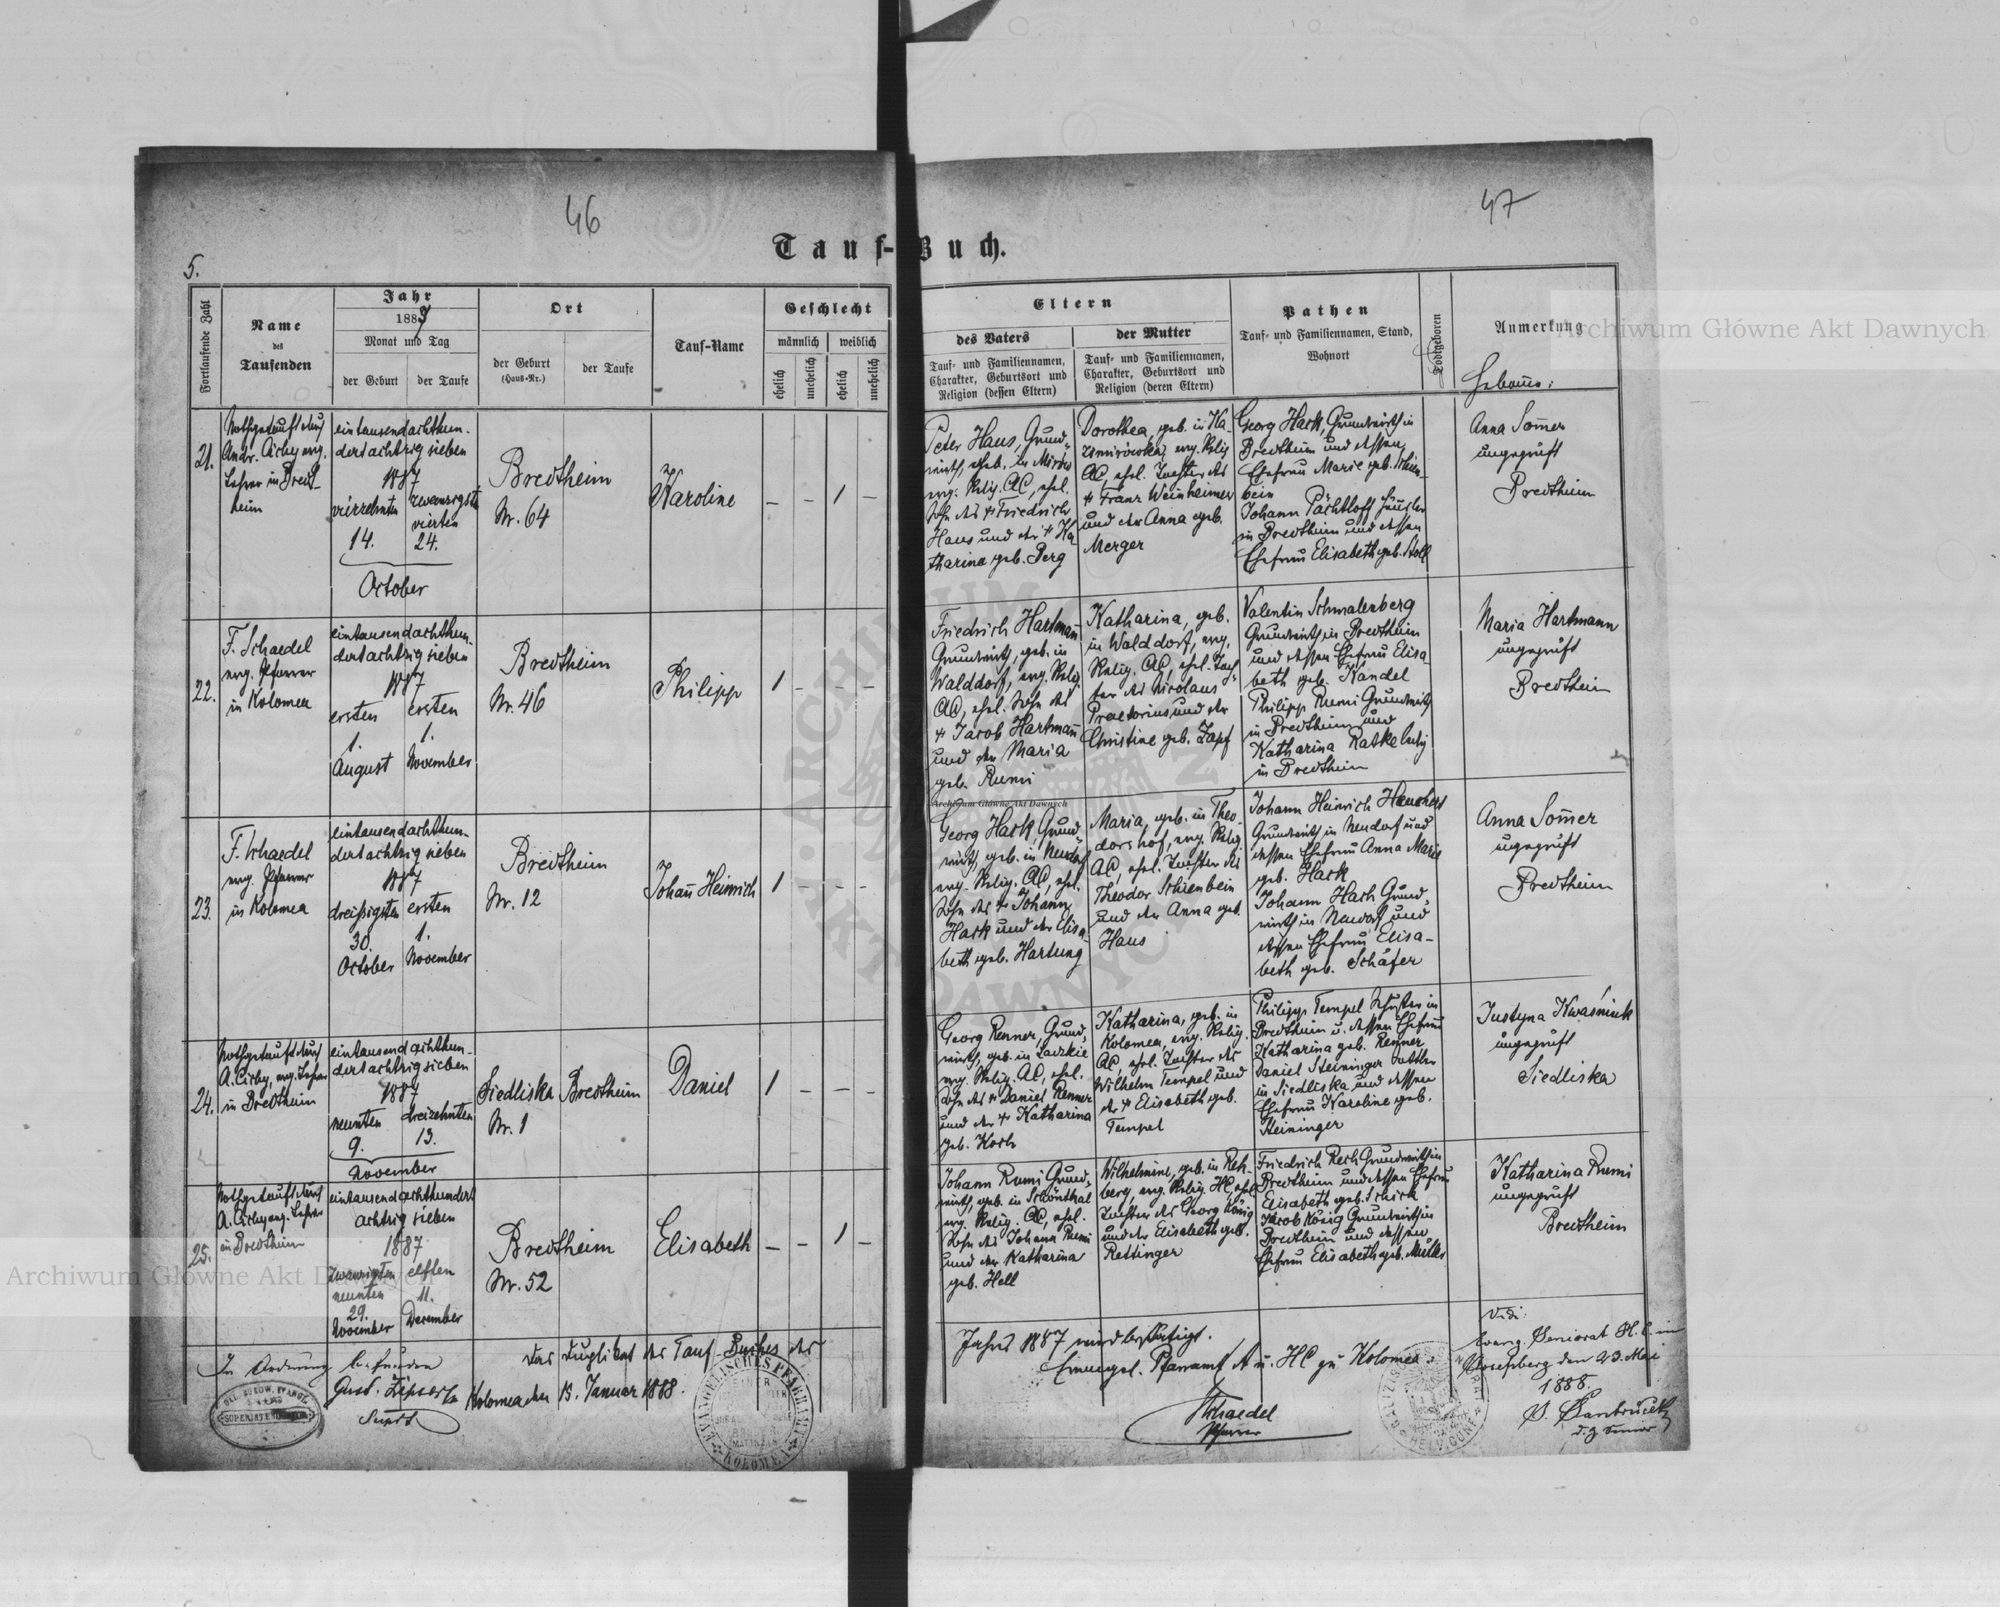 46
47
Tauf-Buch.
5.
Fortlaufende Zahl
Name
des
Taufenden
Jahr
1887
Monat und Tag
der Geburt
der Taufe
Ort
der Geburt
(Haus-Nr.)
der Taufe
Tauf-Name
Geschlecht
männlich
weiblich
ehelich
unehelich
ehelich
unehelich
Eltern
des Vaters
Tauf- und Familiennamen,
Charakter, Geburtsort und
Religion (dessen Eltern)
der Mutter
Tauf- und Familiennamen,
Charakter, Geburtsort und
Religion (deren Eltern)
Pathen
Tauf- und Familiennamen, Stand,
Wohnort
Todtgeboren
Anmerkung
Hebamme:
21.
Nothgetauft durch
Andr. Cichy evg.
Lehrer in Bredt-
heim
eintausendachthun-
dertachtzig sieben
1887
vierzehnten
14.
zwanzigst
vierten
24.
October
Bredtheim
Nr. 64
Karoline
— – 1 –
Peter Haus, Grund-
wirth, geb. in
evg. Relig. AC, ehel.
Sohn des + Friedrich
Haus und der + Ka-
tharina geb. Berg
Dorothea, geb. in Ka-
zimirowka, evg. Relig.
AC, ehel. Tochter des
+ Franz Weinheimer
und der Anna geb.
Merger
Georg Hark, Grundwirth in
Bredtheim und dessen
Ehefrau Marie geb. Schien-
bein
Johann Pächtloff Häusler
in Bredtheim und dessen
Ehefrau Elisabeth geb. Stoll
Anna Som̄er
ungeprüft
Bredtheim
22.
F. Schaedel
evg. Pfarrer
in Kolomea
eintausendachthun-
dertachtzig sieben
1887
ersten
1.
August
ersten
1.
November
Bredtheim
Nr. 46
Philipp
1 – – –
Friedrich Hartman̄
Grundwirth, geb. in
Walddorf, evg. Relig.
AC, ehel. Sohn des
+ Jacob Hartman̄
und der Maria
geb. Rumi
Katharina, geb.
in Walddorf, evg.
Relig. AC, ehel. Toch-
ter des Nicolaus
Praetorius und der
Christine geb. Zapf
Valentin Schmalenberg
Grundwirth in Bredtheim
und dessen Ehefrau Elisa-
beth geb. Kandel
Philipp Rumi Grundwirth
in Bredtheim und
Katharina Ratke ledig
in Bredtheim
Maria Hartmann
ungeprüft
Bredtheim
23.
F. Schaedel
evg. Pfarrer
in Kolomea
eintausendachthun-
dertachtzig sieben
1887
dreißigsten
30.
October
ersten
1.
November
Bredtheim
Nr. 12
Johan̄ Heinrich
1 – – –
Georg Hark, Grund-
wirth, geb. in Neudorf
evg. Relig. AC, ehel.
Sohn des + Johann
Hark und der Elisa-
beth geb. Hartung
Maria, geb. in Theo-
dorshof, evg. Relig.
AC, ehel. Tochter des
Theodor Schienbein
und der Anna geb.
Haus
Johann Heinrich
Grundwirth in Neudorf und
dessen Ehefrau Anna Marie
geb. Hark
Johann Hark Grund-
wirth in Neudorf und
dessen Ehefrau Elisa-
beth geb. Schäfer
Anna Som̄er
ungeprüft
Bredtheim
24.
Nothgetauft durch
A. Cichy, evg. Lehrer
in Bredtheim
eintausendachthun-
dertachtzig sieben
1887
neunten
9.
dreizehnten
13.
November
Siedliska
Nr. 1
Bredtheim
Daniel
1 – — –
Georg Renner, Grund-
wirth, geb. in Laczkie
evg. Relig. AC, ehel.
Sohn des + Daniel Renner
und der + Katharina
geb. Koch
Katharina, geb. in
Kolomea, evg. Relig.
AC, ehel. Tochter des
Wilhelm Tempel und
der + Elisabeth geb.
Tempel
Philipp Tempel Schuster in
Bredtheim u. dessen Ehefrau
Katharina geb. Renner
Daniel Steininger
in Siedliska und dessen
Ehefrau Karoline geb.
Steininger
Justyna Kwaśniuk
ungeprüft
Siedliska
25.
Nothgetauft durch
A. Cichy evg. Lehrer
in Bredtheim
eintausendachthundert
achtzig sieben
1887
zwanzigsten
neunten
29.
November
elften
11.
December
Bredtheim
Nr. 52
Elisabeth
— – 1 –
Johann Rumi Grund-
wirth, geb. in Schönthal
evg. Relig. AC, ehel.
Sohn des Johann Rumi
und der Katharina
geb. Hell
Wilhelmine, geb. in Reh-
berg, evg. Relig. HC, ehel.
Tochter des Georg König
und der Elisabeth geb.
Rettinger
Friedrich Rech Grundwirth in
Bredtheim und dessen Ehefrau
Elisabeth geb. Schick
Jacob König Grundwirth in
Bredtheim und dessen
Ehefrau Elisabeth geb. Müller
Katharina Rumi
ungeprüft
Bredtheim
In Ordnung befunden
Supdt
Das Duplikat des Tauf-Buches des
Kolomea den 15. Januar 1888.
Jahres 1887 wird bestätigt.
Evangel. Pfarramt A u. HC zu Kolomea.
FSchaedel
Pfarrer
Vidi:
Evang. Seniorat H. C. in
Josefsberg den 23. Mai
1888.
d. z. Senior
EVANGELISCHES PFARRAMT
KOLOMEA
Archiwum Główne Akt Dawnych
Archiwum Główne Akt Dawnych
Archiwum Główne Akt Dawnych
ARCHIWUM
AKT DAWNYCH